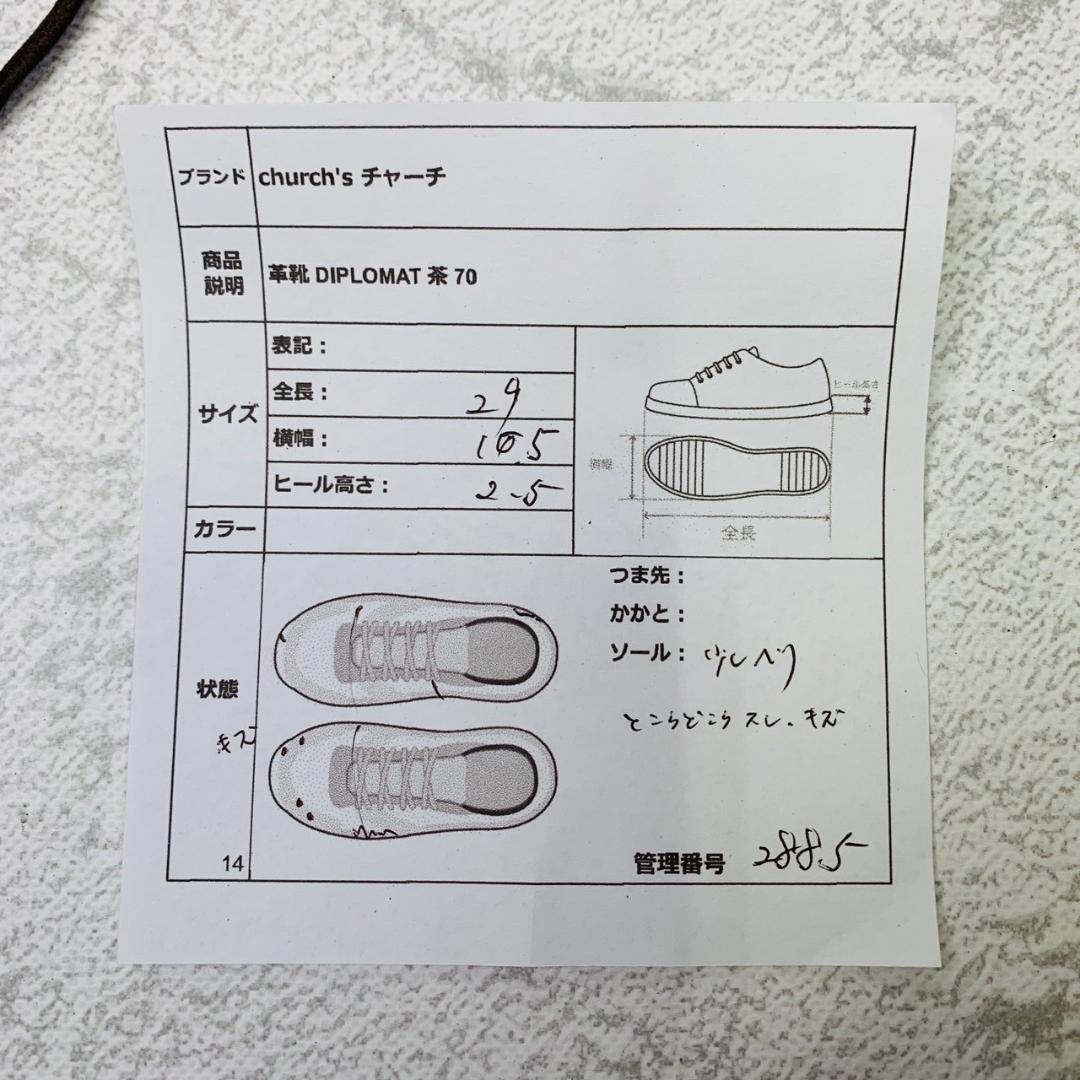 ブランド church's チャーチ
商品
説明
革靴 DIPLOMAT 茶 70
サイズ
表記：
全長： 29
横幅： 10.5
ヒール高さ： 2.5
カラー
ヒール高さ
横幅
全長
状態
キズ
つま先：
かかと：
ソール： 少しヘリ
ところどころ スレ、キズ
14
管理番号 288.5